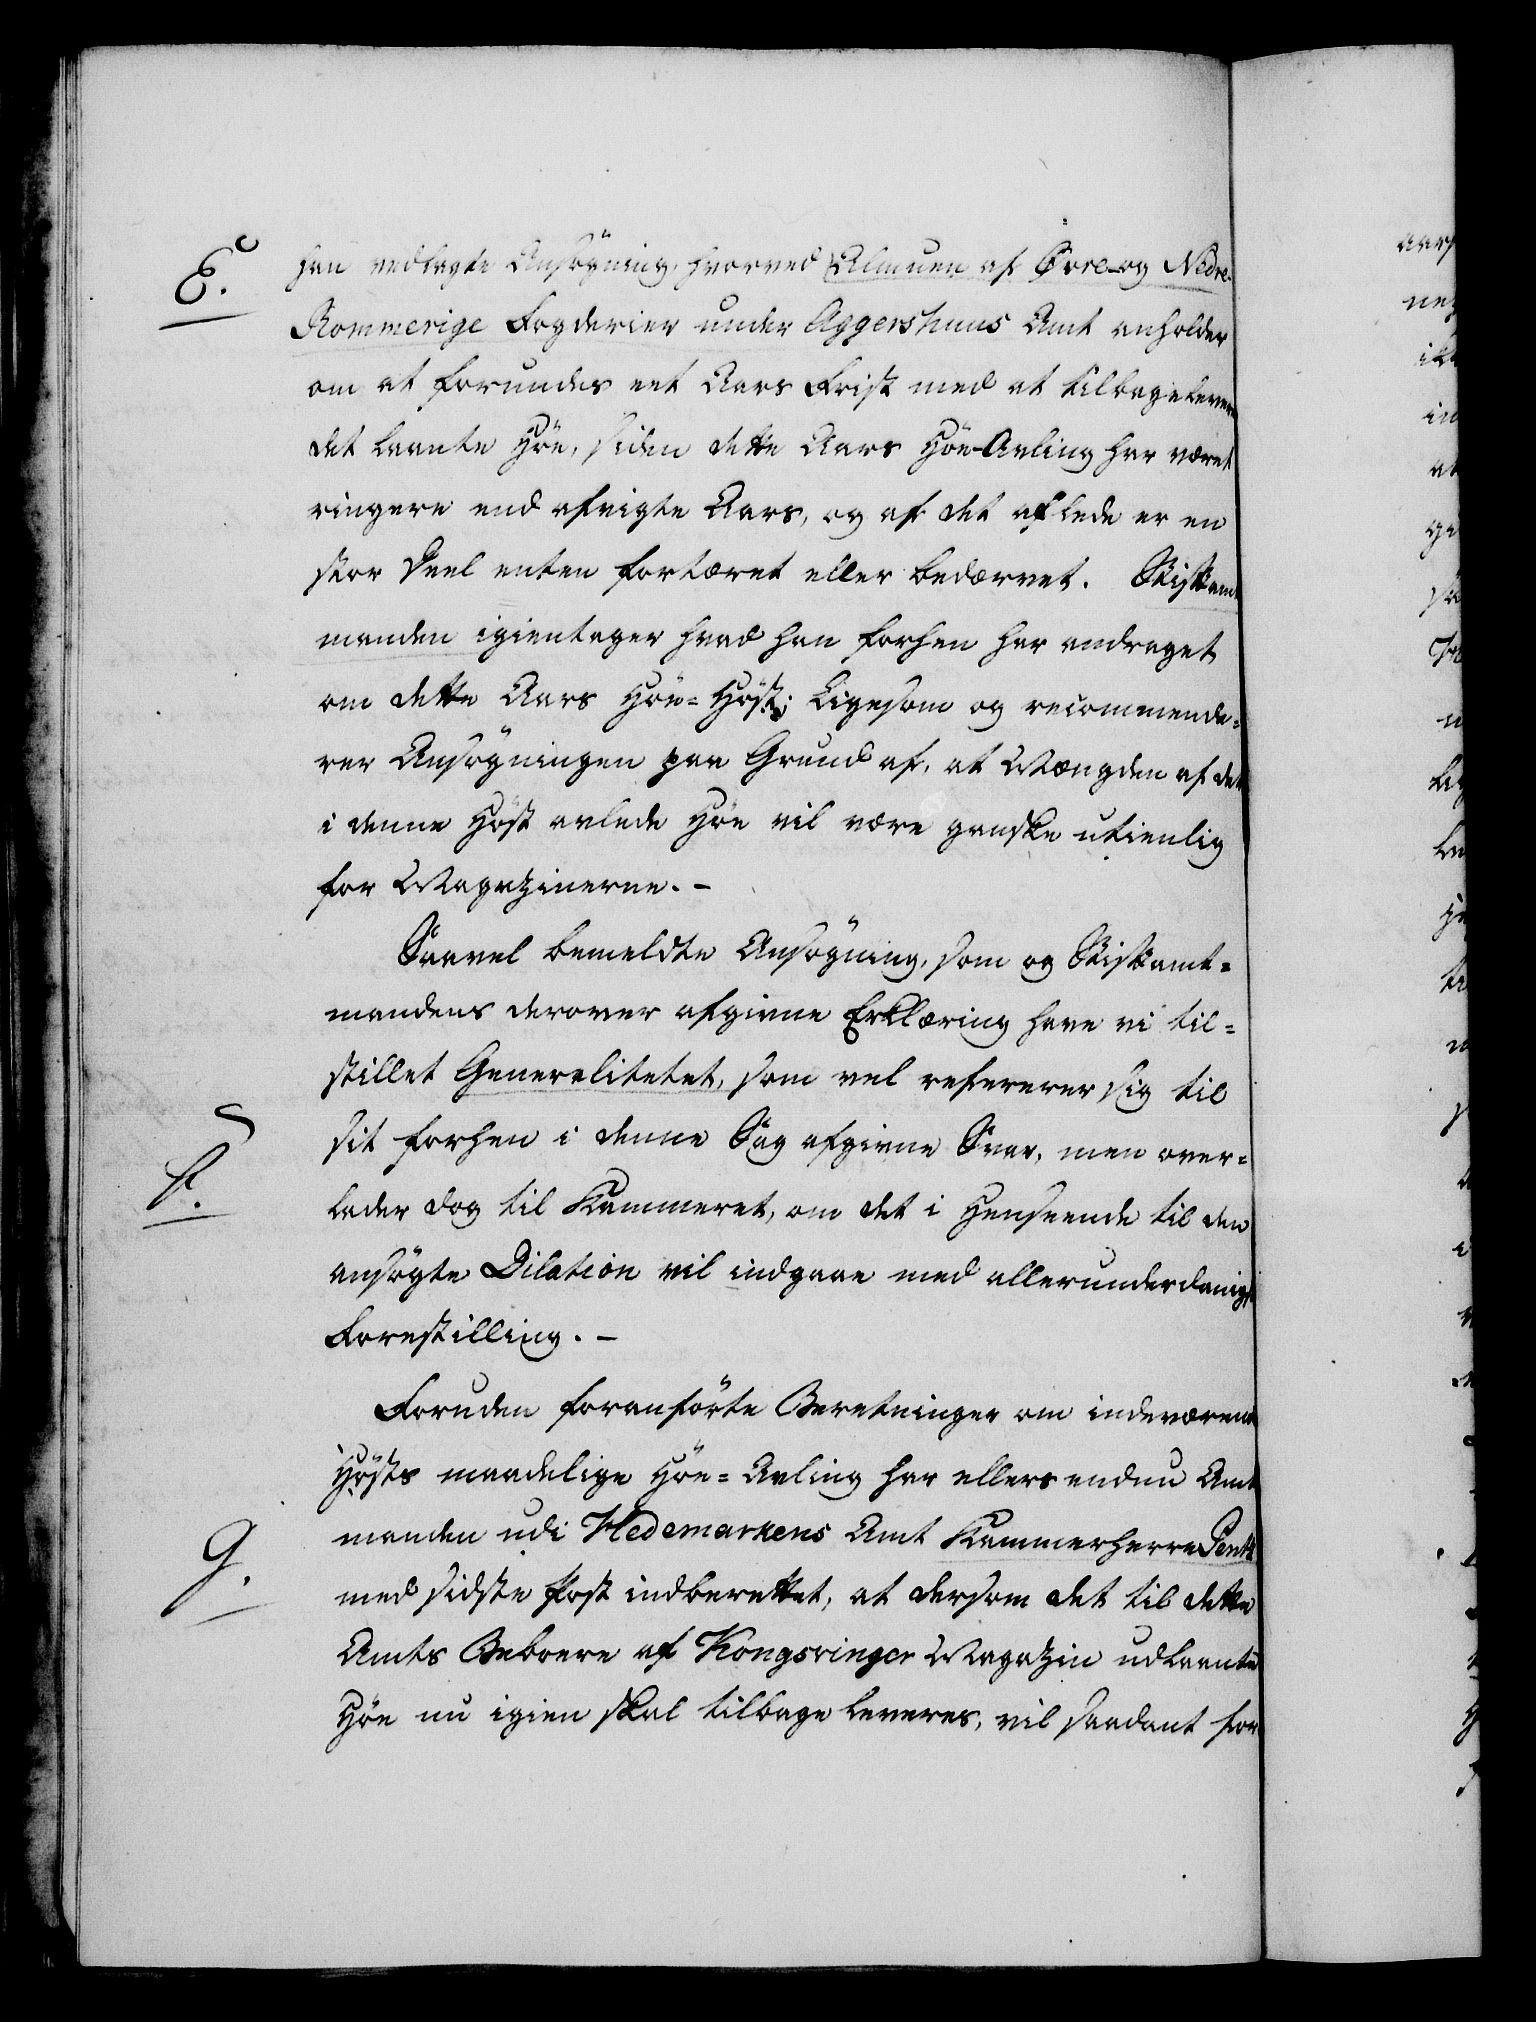 E.
han vedlagte Ansögning, hvorved Almuen af Øvre- og Nedre-
Rommerige Fogderier under Aggershuus Amt anholder
om at forundes eet Aars Frist med at tilbagelevere
det laante Höe, siden dette Aars Höe-Avling har været
ringere end afvigte Aars, og af det avlede er en
stor Deel enten fortæret eller bedærvet. Stiftamt
manden igientager hvad han forhen har andraget
om dette Aars Höe-Höst; Ligesom og recommende-
rer Ansögningen paa Grund af, at Mængden af det
i denne Höst avlede Höe vil være ganske utienlig
for Magazinerne. -
Saavel bemeldte Ansögning, som og Stiftamt-
mandens derover afgivne Erklæring have vi til-
stillet Generalitetet, som vel refererer sig til
F.
sit forhen i denne Sag afgivne Svar, men over-
lader dog til Kammeret, om det i Henseende til den
ansögte Dilation vil indgaae med allerunderdanigst
Forestilling. -
Foruden foranförte Beretninger om indeværende
Hösts maadelige Höe-Avling har ellers endnu Amt
G.
manden udi Hedemarkens Amt Kammerherre
med sidste Post indberettet, at dersom det til dette
Amts Beboere af Kongsvinger Magazin udlaante
Höe nu igien skal tilbage leveres, vil saadant for